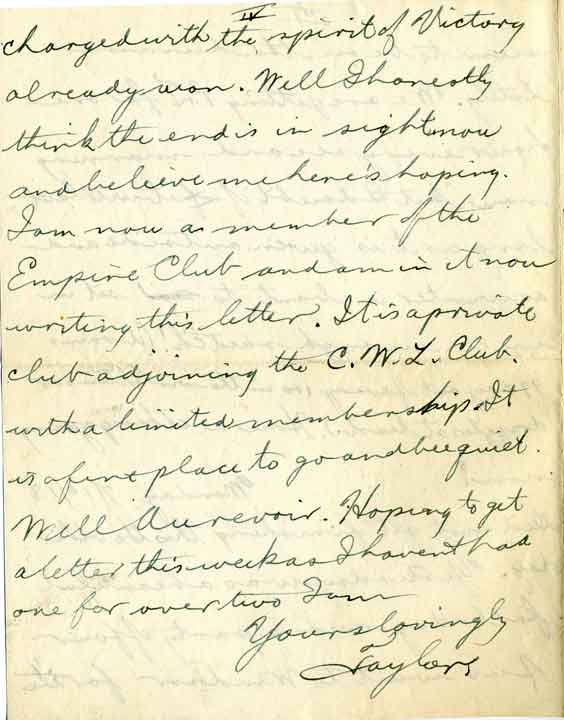 IV
charged with the spirit of Victory
already won. Well I honestly
think the end is in sight now
and believe me here's hoping.
I am now a member of the
Empire Club and am in it now
writing this letter. It is a private
club adjoining the C. W. L. Club.
with a limited membership. It
is a fine place to go and be quiet.
Well Au revoir. Hoping to get
a letter this week as I havent had
one for over two I am
Yours lovingly
Taylor